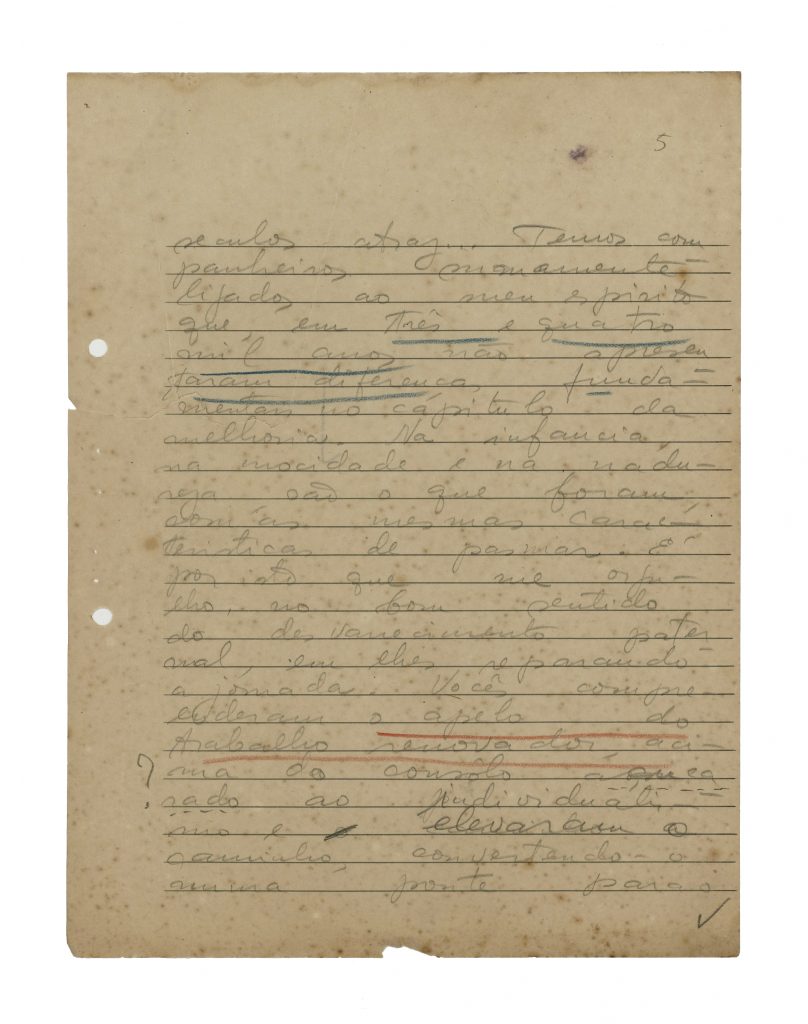 5
seculos atraz... Temos com-
panheiros
ligados ao meu espirito
que, em três e quatro
mil anos não apresen
taram diferenças funda=
mentais no capitulo da
melhoria. Na infancia,
na mocidade e na madu-
reza são o que foram
com as mesmas carac-
teristicas de pasmar. É
por isto que me orgu-
lho, no bom sentido
do desvanecimento pater
nal, em lhes reparando
a jornada. Vocês compre-
enderam o apelo do
trabalho renovador, aci-
ma do consôlo
? ao individualis
mo e elevaram o
caminho, convertendo-o
numa ponte para o